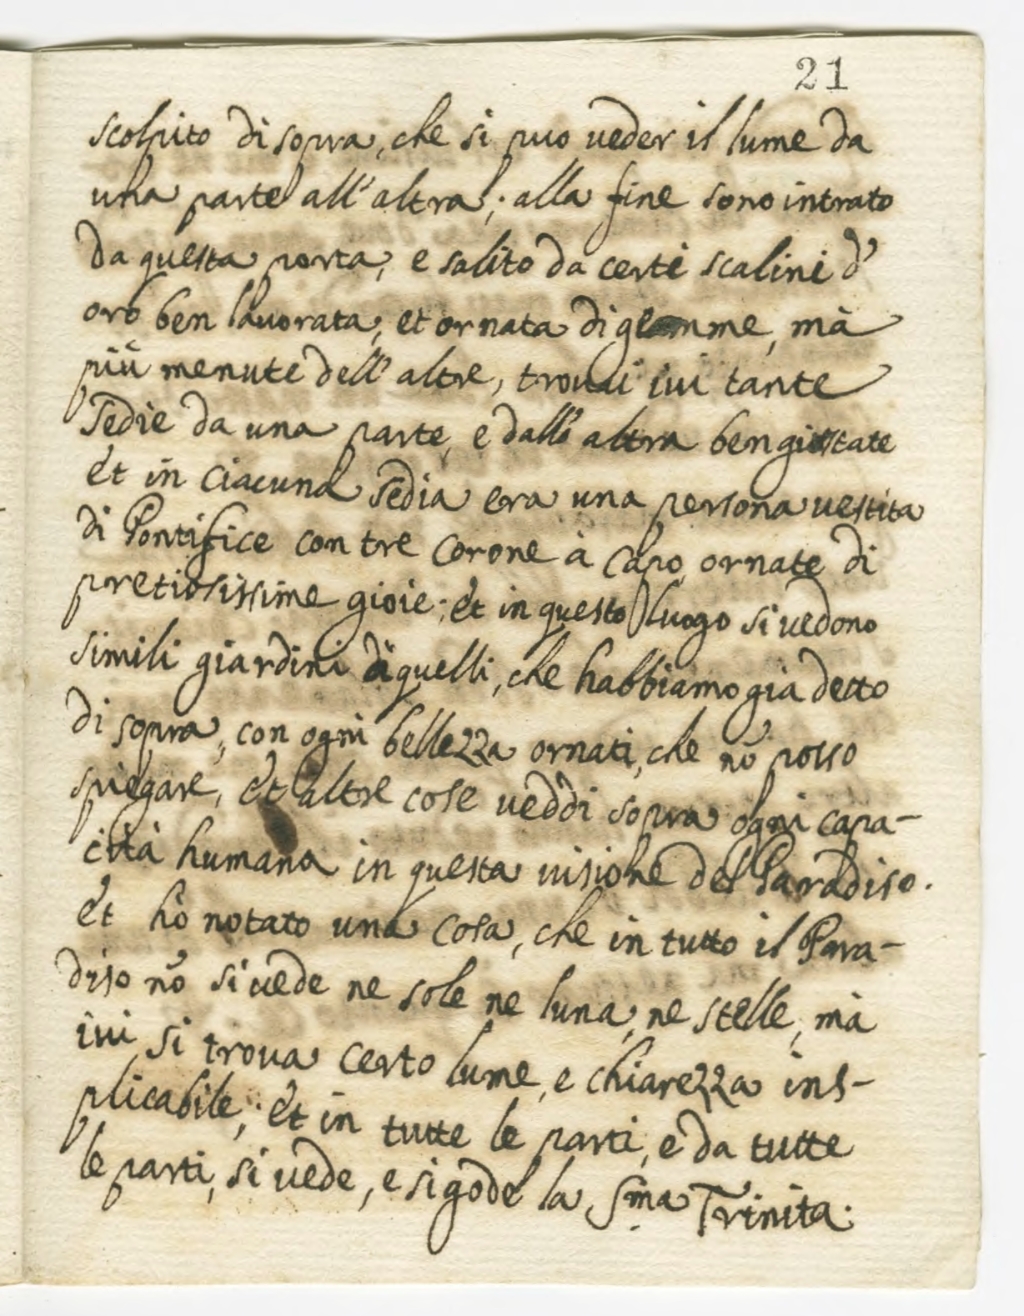 21
scolpito di sopra, che si puo ueder il lume da
una parte all'altra; alla fine sono intrato
da questa porta, e salito da certi scalini d'
oro ben lauorata, et ornata di gemme, mà
più menute dell'altre, trouai iui tante
sedie da una parte, e dall'altra ben giustate
et in ciacuna sedia era una persona uestita
di Pontifice con tre corone à capo ornate di
pretiosissime gioie; et in questo luogo si uedono
simili giardini à quelli, che habbiamo gia detto
di sopra, con ogni bellezza ornati, che nō posso
spiegare, et altre cose ueddi sopra ogni capa-
cità humana in questa uisione del Paradiso.
et hò notato una cosa, che in tutto il Para-
diso nō si uede ne sole ne luna, ne stelle, mà
iui si troua certo lume, e chiarezza ins-
plicabile; et in tutte le parti, e da tutte
le parti, si uede, e si gode la Sma Trinita.